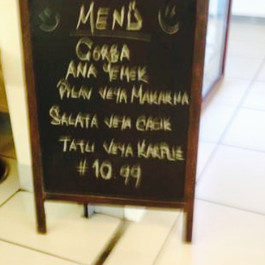 MENÜ
ÇORBA
ANA YEMEK
PILAV VEYA MAKARNA
SALATA VEYA CACIK
TATLI VEYA
# 10.99